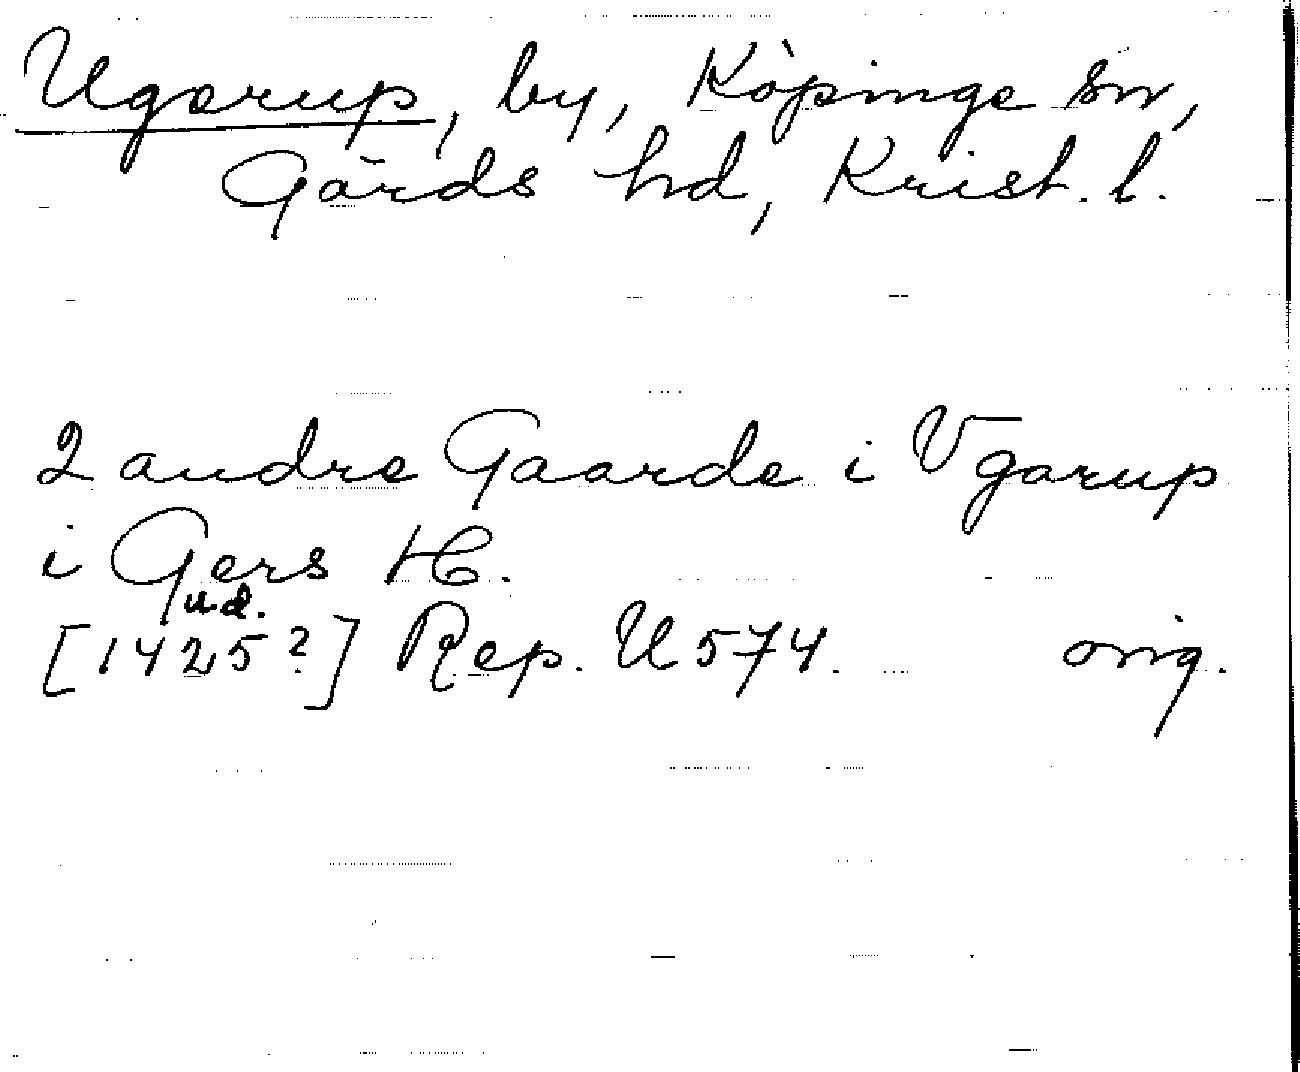 Ugerup, by, Köpinge sn,
Gärds hd, Krist. l.
2 andre Gaarde i Vgarup
i Gers H.
u.d.
[1425?] Rep. U 574. orig.